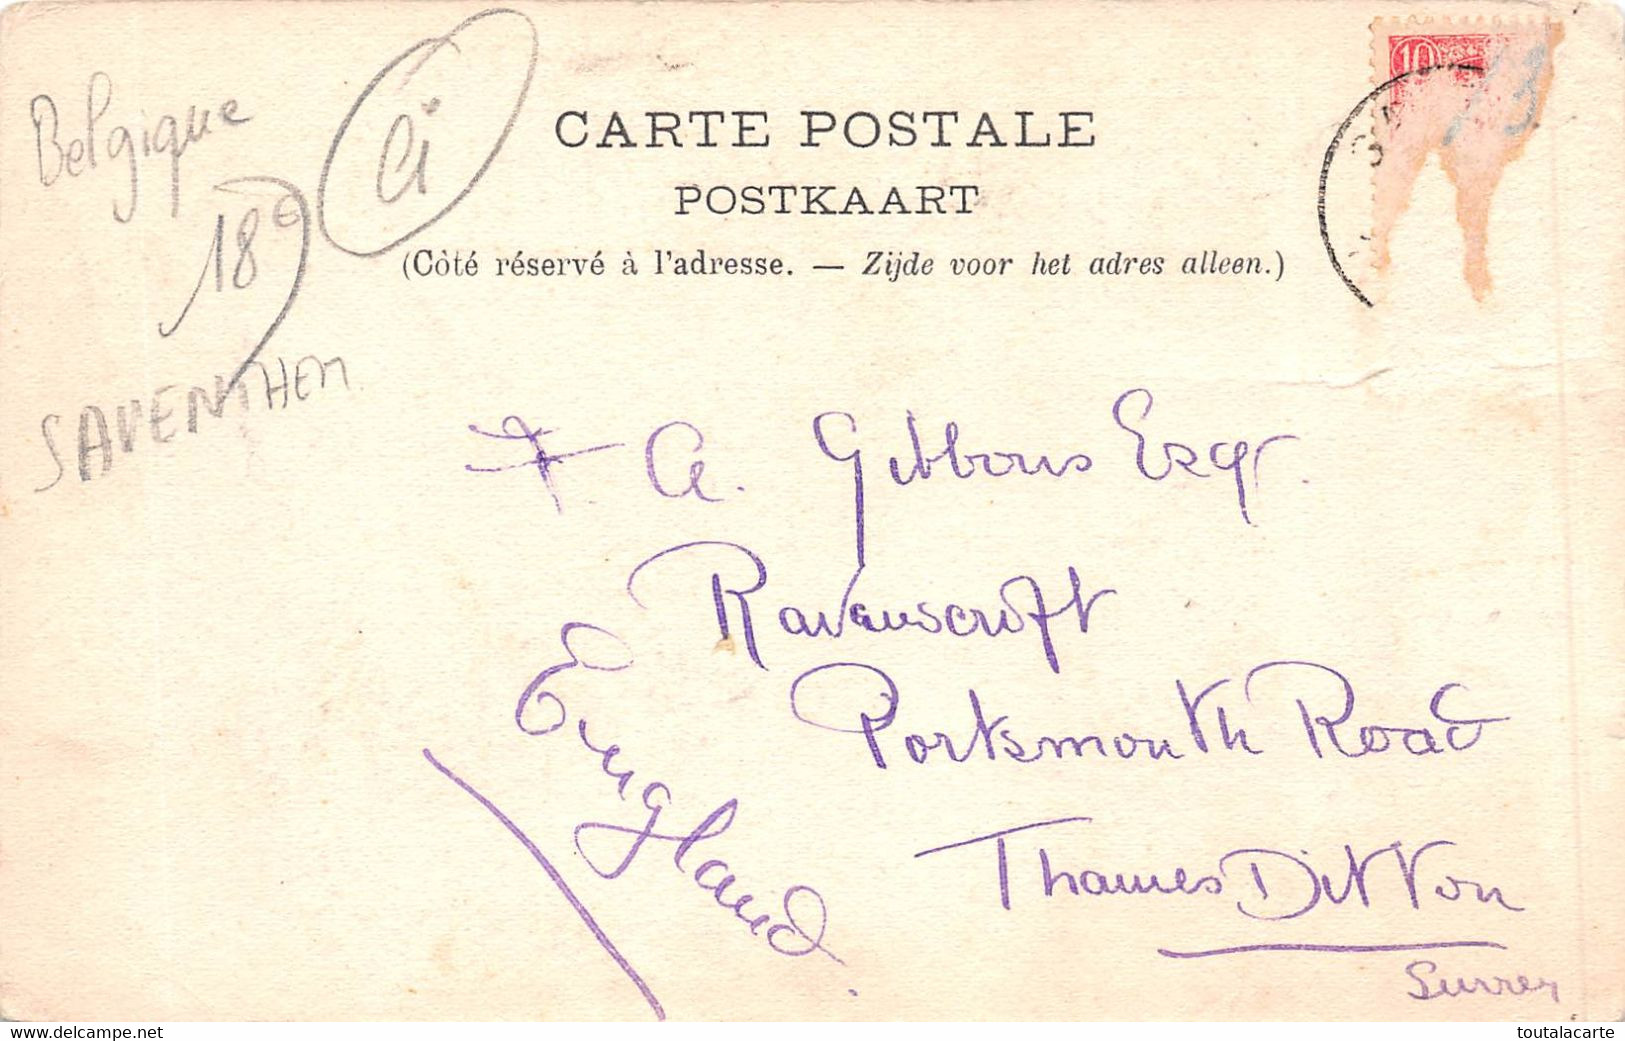 Belgique
18€
Ci
SAVENTHEM
CARTE POSTALE
POSTKAART
(Côté réservé à l'adresse. — Zijde voor het adres alleen.)
10
A. Gibbons Esqr.
Ravenscroft
Portsmouth Road
Thames Ditton
Surrey
England
www.delcampe.net
toutalacarte